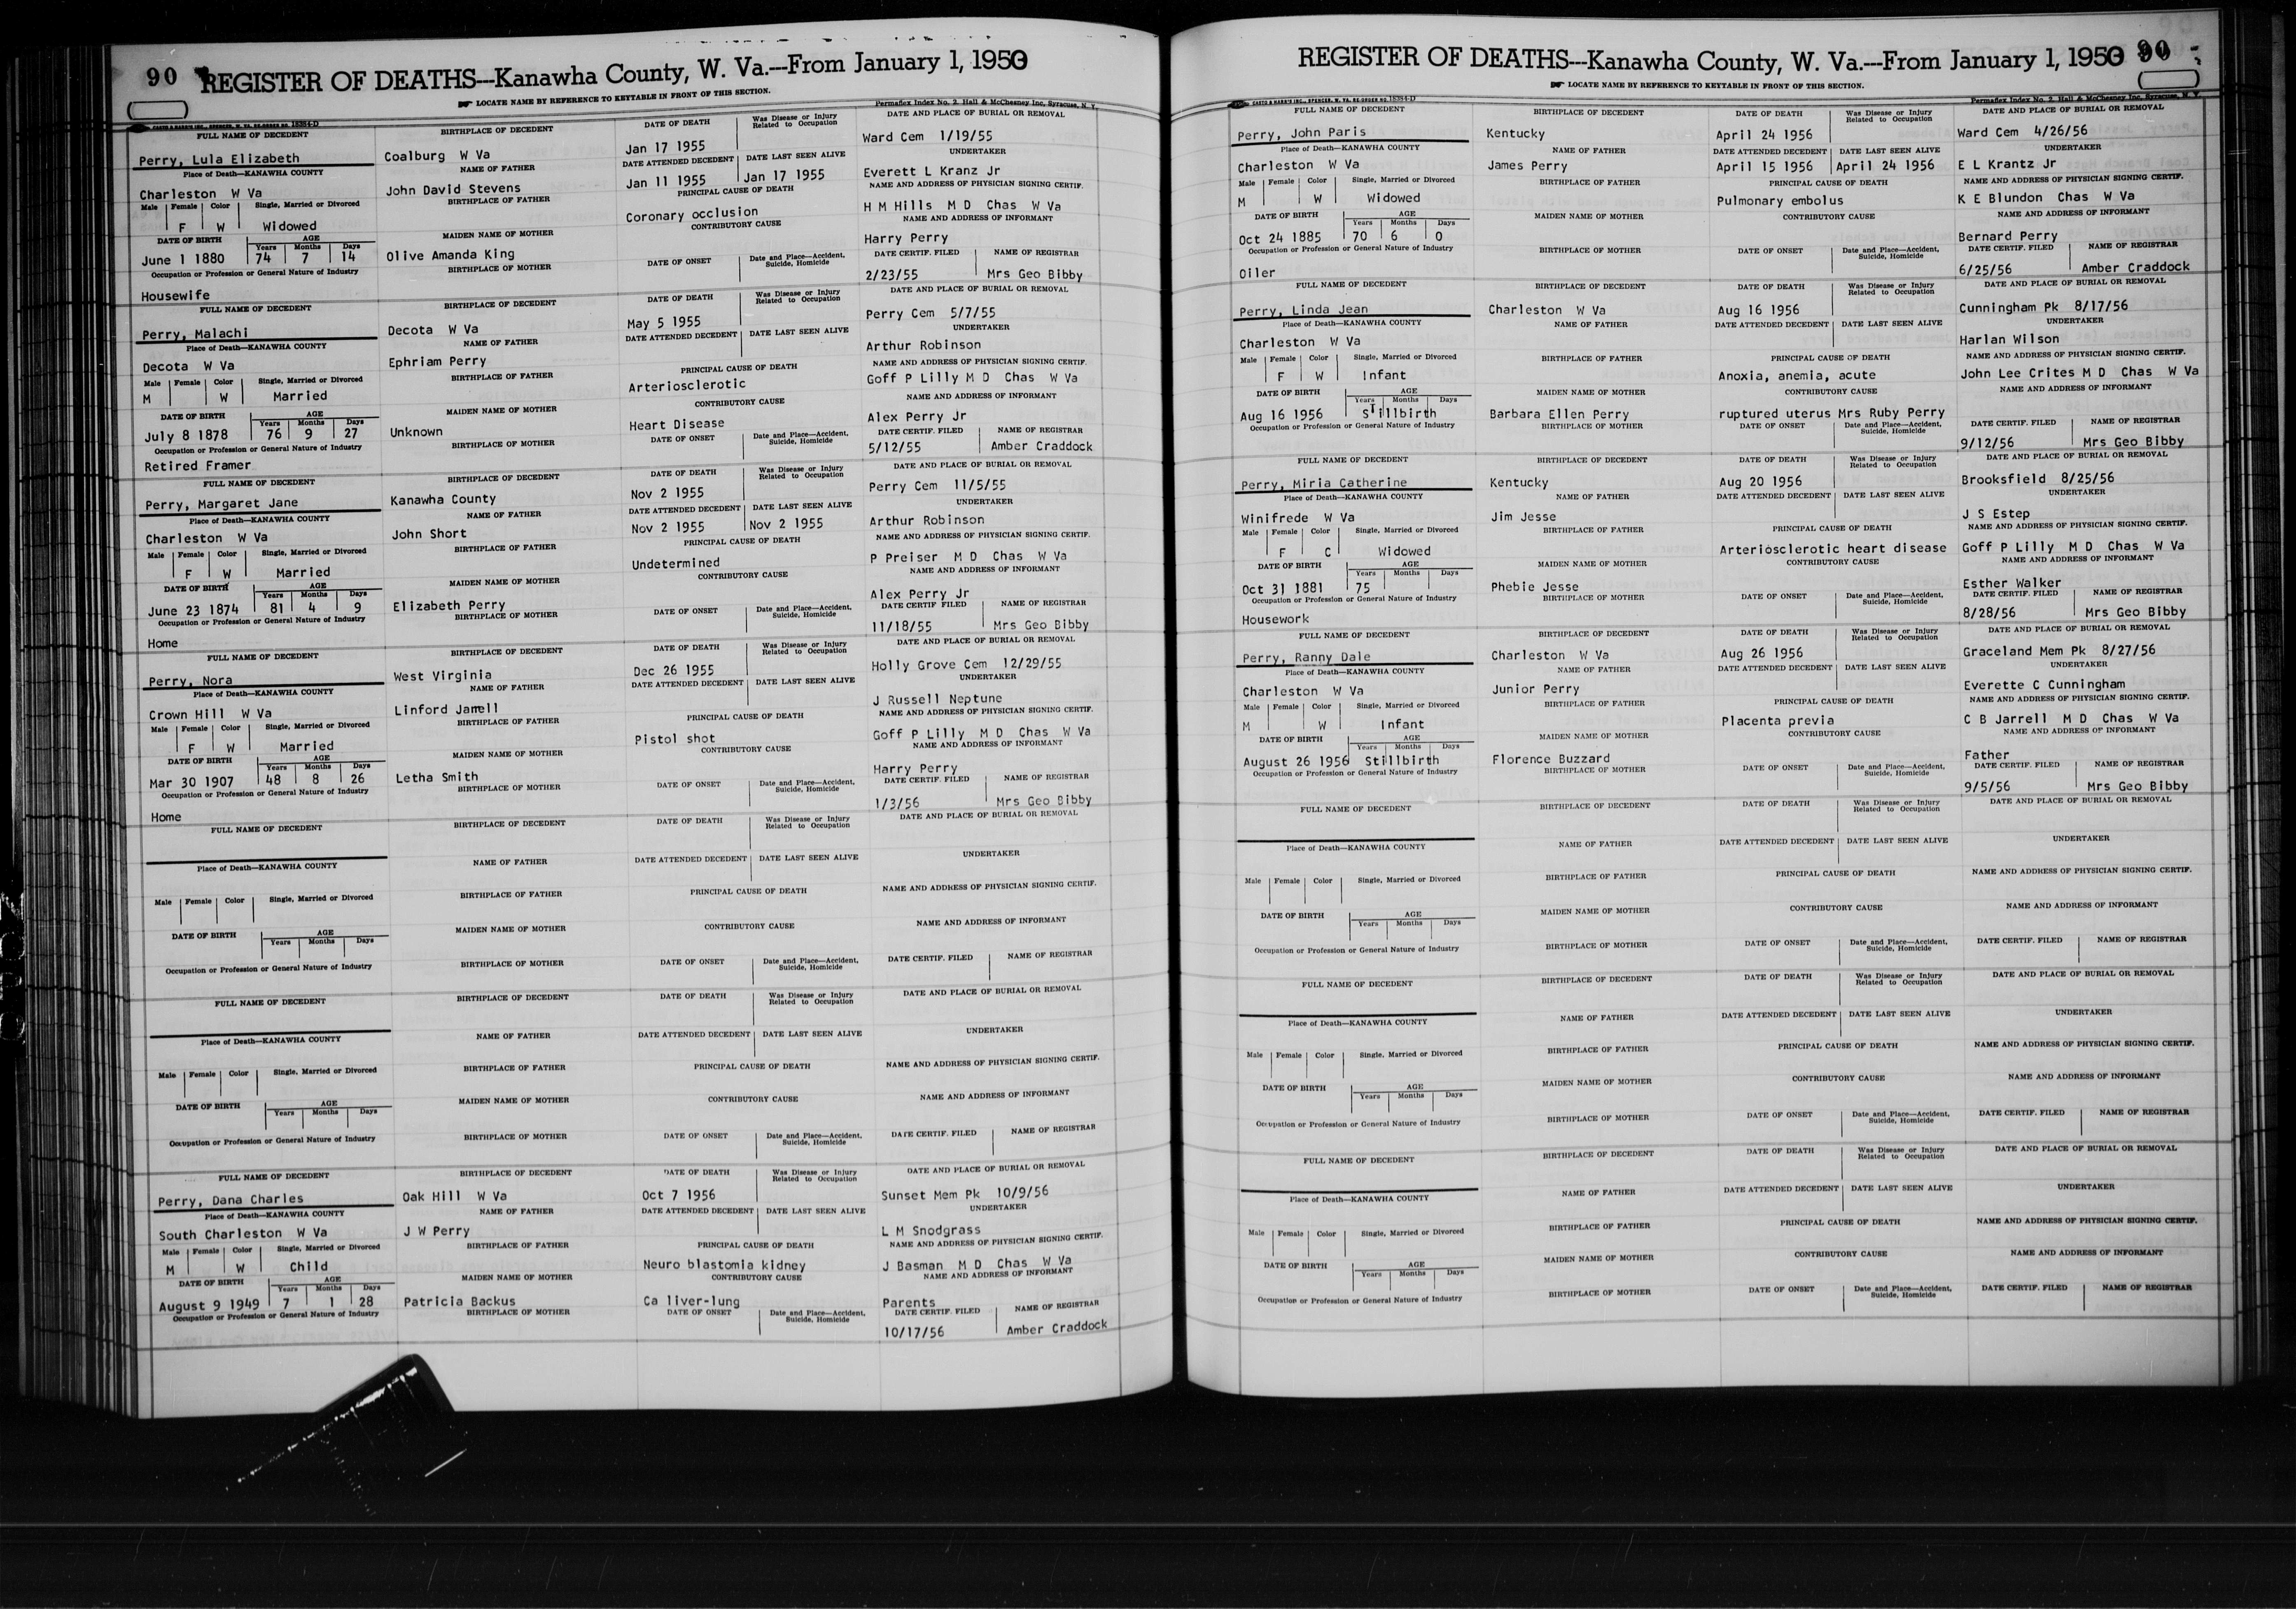 90 REGISTER OF DEATHS---Kanawha County, W. Va.---From January 1, 1950
LOCATE NAME BY REFERENCE TO KEYTABLE IN FRONT OF THIS SECTION.
CASTO & HARRIS INC., SPENCER, W. VA. RE-ORDER NO. 18384-D
Permaflex Index No. 2. Hall & McChesney Inc, Syracuse, N. Y.
FULL NAME OF DECEDENT BIRTHPLACE OF DECEDENT DATE OF DEATH Was Disease or Injury Related to Occupation DATE AND PLACE OF BURIAL OR REMOVAL
Perry, Lula Elizabeth Coalburg W Va Jan 17 1955 Ward Cem 1/19/55
Place of Death—KANAWHA COUNTY NAME OF FATHER DATE ATTENDED DECEDENT DATE LAST SEEN ALIVE UNDERTAKER
Charleston W Va John David Stevens Jan 11 1955 Jan 17 1955 Everett L Kranz Jr
Male Female Color Single, Married or Divorced BIRTHPLACE OF FATHER PRINCIPAL CAUSE OF DEATH NAME AND ADDRESS OF PHYSICIAN SIGNING CERTIF.
F W Widowed Coronary occlusion H M Hills M D Chas W Va
DATE OF BIRTH AGE Years Months Days MAIDEN NAME OF MOTHER CONTRIBUTORY CAUSE NAME AND ADDRESS OF INFORMANT
June 1 1880 74 7 14 Olive Amanda King Harry Perry
Occupation or Profession or General Nature of Industry BIRTHPLACE OF MOTHER DATE OF ONSET Date and Place—Accident, Suicide, Homicide DATE CERTIF. FILED NAME OF REGISTRAR
Housewife 2/23/55 Mrs Geo Bibby
FULL NAME OF DECEDENT BIRTHPLACE OF DECEDENT DATE OF DEATH Was Disease or Injury Related to Occupation DATE AND PLACE OF BURIAL OR REMOVAL
Perry, Malachi Decota W Va May 5 1955 Perry Cem 5/7/55
Place of Death—KANAWHA COUNTY NAME OF FATHER DATE ATTENDED DECEDENT DATE LAST SEEN ALIVE UNDERTAKER
Decota W Va Ephriam Perry Arthur Robinson
Male Female Color Single, Married or Divorced BIRTHPLACE OF FATHER PRINCIPAL CAUSE OF DEATH NAME AND ADDRESS OF PHYSICIAN SIGNING CERTIF.
M W Married Arteriosclerotic Goff P Lilly M D Chas W Va
DATE OF BIRTH AGE Years Months Days MAIDEN NAME OF MOTHER CONTRIBUTORY CAUSE NAME AND ADDRESS OF INFORMANT
July 8 1878 76 9 27 Unknown Heart Disease Alex Perry Jr
Occupation or Profession or General Nature of Industry BIRTHPLACE OF MOTHER DATE OF ONSET Date and Place—Accident, Suicide, Homicide DATE CERTIF. FILED NAME OF REGISTRAR
Retired Framer 5/12/55 Amber Craddock
FULL NAME OF DECEDENT BIRTHPLACE OF DECEDENT DATE OF DEATH Was Disease or Injury Related to Occupation DATE AND PLACE OF BURIAL OR REMOVAL
Perry, Margaret Jane Kanawha County Nov 2 1955 Perry Cem 11/5/55
Place of Death—KANAWHA COUNTY NAME OF FATHER DATE ATTENDED DECEDENT DATE LAST SEEN ALIVE UNDERTAKER
Charleston W Va John Short Nov 2 1955 Nov 2 1955 Arthur Robinson
Male Female Color Single, Married or Divorced BIRTHPLACE OF FATHER PRINCIPAL CAUSE OF DEATH NAME AND ADDRESS OF PHYSICIAN SIGNING CERTIF.
F W Married Undetermined P Preiser M D Chas W Va
DATE OF BIRTH AGE Years Months Days MAIDEN NAME OF MOTHER CONTRIBUTORY CAUSE NAME AND ADDRESS OF INFORMANT
June 23 1874 81 4 9 Elizabeth Perry Alex Perry Jr
Occupation or Profession or General Nature of Industry BIRTHPLACE OF MOTHER DATE OF ONSET Date and Place—Accident, Suicide, Homicide DATE CERTIF FILED NAME OF REGISTRAR
Home 11/18/55 Mrs Geo Bibby
FULL NAME OF DECEDENT BIRTHPLACE OF DECEDENT DATE OF DEATH Was Disease or Injury Related to Occupation DATE AND PLACE OF BURIAL OR REMOVAL
Perry, Nora West Virginia Dec 26 1955 Holly Grove Cem 12/29/55
Place of Death—KANAWHA COUNTY NAME OF FATHER DATE ATTENDED DECEDENT DATE LAST SEEN ALIVE UNDERTAKER
Crown Hill W Va Linford Jarrell J Russell Neptune
Male Female Color Single, Married or Divorced BIRTHPLACE OF FATHER PRINCIPAL CAUSE OF DEATH NAME AND ADDRESS OF PHYSICIAN SIGNING CERTIF.
F W Married Pistol shot Goff P Lilly M D Chas W Va
DATE OF BIRTH AGE Years Months Days MAIDEN NAME OF MOTHER CONTRIBUTORY CAUSE NAME AND ADDRESS OF INFORMANT
Mar 30 1907 48 8 26 Letha Smith Harry Perry
Occupation or Profession or General Nature of Industry BIRTHPLACE OF MOTHER DATE OF ONSET Date and Place—Accident, Suicide, Homicide DATE CERTIF. FILED NAME OF REGISTRAR
Home 1/3/56 Mrs Geo Bibby
FULL NAME OF DECEDENT BIRTHPLACE OF DECEDENT DATE OF DEATH Was Disease or Injury Related to Occupation DATE AND PLACE OF BURIAL OR REMOVAL
Place of Death—KANAWHA COUNTY NAME OF FATHER DATE ATTENDED DECEDENT DATE LAST SEEN ALIVE UNDERTAKER
Male Female Color Single, Married or Divorced BIRTHPLACE OF FATHER PRINCIPAL CAUSE OF DEATH NAME AND ADDRESS OF PHYSICIAN SIGNING CERTIF.
DATE OF BIRTH AGE Years Months Days MAIDEN NAME OF MOTHER CONTRIBUTORY CAUSE NAME AND ADDRESS OF INFORMANT
Occupation or Profession or General Nature of Industry BIRTHPLACE OF MOTHER DATE OF ONSET Date and Place—Accident, Suicide, Homicide DATE CERTIF. FILED NAME OF REGISTRAR
FULL NAME OF DECEDENT BIRTHPLACE OF DECEDENT DATE OF DEATH Was Disease or Injury Related to Occupation DATE AND PLACE OF BURIAL OR REMOVAL
Place of Death—KANAWHA COUNTY NAME OF FATHER DATE ATTENDED DECEDENT DATE LAST SEEN ALIVE UNDERTAKER
Male Female Color Single, Married or Divorced BIRTHPLACE OF FATHER PRINCIPAL CAUSE OF DEATH NAME AND ADDRESS OF PHYSICIAN SIGNING CERTIF.
DATE OF BIRTH AGE Years Months Days MAIDEN NAME OF MOTHER CONTRIBUTORY CAUSE NAME AND ADDRESS OF INFORMANT
Occupation or Profession or General Nature of Industry BIRTHPLACE OF MOTHER DATE OF ONSET Date and Place—Accident, Suicide, Homicide DATE CERTIF. FILED NAME OF REGISTRAR
FULL NAME OF DECEDENT BIRTHPLACE OF DECEDENT DATE OF DEATH Was Disease or Injury Related to Occupation DATE AND PLACE OF BURIAL OR REMOVAL
Perry, Dana Charles Oak Hill W Va Oct 7 1956 Sunset Mem Pk 10/9/56
Place of Death—KANAWHA COUNTY NAME OF FATHER DATE ATTENDED DECEDENT DATE LAST SEEN ALIVE UNDERTAKER
South Charleston W Va J W Perry L M Snodgrass
Male Female Color Single, Married or Divorced BIRTHPLACE OF FATHER PRINCIPAL CAUSE OF DEATH NAME AND ADDRESS OF PHYSICIAN SIGNING CERTIF.
M W Child Neuro blastomia kidney J Basman M D Chas W Va
DATE OF BIRTH AGE Years Months Days MAIDEN NAME OF MOTHER CONTRIBUTORY CAUSE NAME AND ADDRESS OF INFORMANT
August 9 1949 7 1 28 Patricia Backus Ca liver-lung Parents
Occupation or Profession or General Nature of Industry BIRTHPLACE OF MOTHER DATE OF ONSET Date and Place—Accident, Suicide, Homicide DATE CERTIF. FILED NAME OF REGISTRAR
10/17/56 Amber Craddock
REGISTER OF DEATHS---Kanawha County, W. Va.---From January 1, 1950 90
LOCATE NAME BY REFERENCE TO KEYTABLE IN FRONT OF THIS SECTION.
CASTO & HARRIS INC., SPENCER, W. VA. RE-ORDER NO. 18384-D
Permaflex Index No. 2. Hall & McChesney Inc, Syracuse, N. Y.
FULL NAME OF DECEDENT BIRTHPLACE OF DECEDENT DATE OF DEATH Was Disease or Injury Related to Occupation DATE AND PLACE OF BURIAL OR REMOVAL
Perry, John Paris Kentucky April 24 1956 Ward Cem 4/26/56
Place of Death—KANAWHA COUNTY NAME OF FATHER DATE ATTENDED DECEDENT DATE LAST SEEN ALIVE UNDERTAKER
Charleston W Va James Perry April 15 1956 April 24 1956 E L Krantz Jr
Male Female Color Single, Married or Divorced BIRTHPLACE OF FATHER PRINCIPAL CAUSE OF DEATH NAME AND ADDRESS OF PHYSICIAN SIGNING CERTIF.
M W Widowed Pulmonary embolus K E Blundon Chas W Va
DATE OF BIRTH AGE Years Months Days MAIDEN NAME OF MOTHER CONTRIBUTORY CAUSE NAME AND ADDRESS OF INFORMANT
Oct 24 1885 70 6 0 Bernard Perry
Occupation or Profession or General Nature of Industry BIRTHPLACE OF MOTHER DATE OF ONSET Date and Place—Accident, Suicide, Homicide DATE CERTIF. FILED NAME OF REGISTRAR
Oiler 6/25/56 Amber Craddock
FULL NAME OF DECEDENT BIRTHPLACE OF DECEDENT DATE OF DEATH Was Disease or Injury Related to Occupation DATE AND PLACE OF BURIAL OR REMOVAL
Perry, Linda Jean Charleston W Va Aug 16 1956 Cunningham Pk 8/17/56
Place of Death—KANAWHA COUNTY NAME OF FATHER DATE ATTENDED DECEDENT DATE LAST SEEN ALIVE UNDERTAKER
Charleston W Va Harlan Wilson
Male Female Color Single, Married or Divorced BIRTHPLACE OF FATHER PRINCIPAL CAUSE OF DEATH NAME AND ADDRESS OF PHYSICIAN SIGNING CERTIF.
F W Infant Anoxia, anemia, acute John Lee Crites M D Chas W Va
DATE OF BIRTH AGE Years Months Days MAIDEN NAME OF MOTHER CONTRIBUTORY CAUSE NAME AND ADDRESS OF INFORMANT
Aug 16 1956 Stillbirth Barbara Ellen Perry ruptured uterus Mrs Ruby Perry
Occupation or Profession or General Nature of Industry BIRTHPLACE OF MOTHER DATE OF ONSET Date and Place—Accident, Suicide, Homicide DATE CERTIF. FILED NAME OF REGISTRAR
9/12/56 Mrs Geo Bibby
FULL NAME OF DECEDENT BIRTHPLACE OF DECEDENT DATE OF DEATH Was Disease or Injury Related to Occupation DATE AND PLACE OF BURIAL OR REMOVAL
Perry, Miria Catherine Kentucky Aug 20 1956 Brooksfield 8/25/56
Place of Death—KANAWHA COUNTY NAME OF FATHER DATE ATTENDED DECEDENT DATE LAST SEEN ALIVE UNDERTAKER
Winifrede W Va Jim Jesse J S Estep
Male Female Color Single, Married or Divorced BIRTHPLACE OF FATHER PRINCIPAL CAUSE OF DEATH NAME AND ADDRESS OF PHYSICIAN SIGNING CERTIF.
F C Widowed Arteriosclerotic heart disease Goff P Lilly M D Chas W Va
DATE OF BIRTH AGE Years Months Days MAIDEN NAME OF MOTHER CONTRIBUTORY CAUSE NAME AND ADDRESS OF INFORMANT
Oct 31 1881 75 Phebie Jesse Esther Walker
Occupation or Profession or General Nature of Industry BIRTHPLACE OF MOTHER DATE OF ONSET Date and Place—Accident, Suicide, Homicide DATE CERTIF. FILED NAME OF REGISTRAR
Housework 8/28/56 Mrs Geo Bibby
FULL NAME OF DECEDENT BIRTHPLACE OF DECEDENT DATE OF DEATH Was Disease or Injury Related to Occupation DATE AND PLACE OF BURIAL OR REMOVAL
Perry, Ranny Dale Charleston W Va Aug 26 1956 Graceland Mem Pk 8/27/56
Place of Death—KANAWHA COUNTY NAME OF FATHER DATE ATTENDED DECEDENT DATE LAST SEEN ALIVE UNDERTAKER
Charleston W Va Junior Perry Everette C Cunningham
Male Female Color Single, Married or Divorced BIRTHPLACE OF FATHER PRINCIPAL CAUSE OF DEATH NAME AND ADDRESS OF PHYSICIAN SIGNING CERTIF.
M W Infant Placenta previa C B Jarrell M D Chas W Va
DATE OF BIRTH AGE Years Months Days MAIDEN NAME OF MOTHER CONTRIBUTORY CAUSE NAME AND ADDRESS OF INFORMANT
August 26 1956 Stillbirth Florence Buzzard Father
Occupation or Profession or General Nature of Industry BIRTHPLACE OF MOTHER DATE OF ONSET Date and Place—Accident, Suicide, Homicide DATE CERTIF. FILED NAME OF REGISTRAR
9/5/56 Mrs Geo Bibby
FULL NAME OF DECEDENT BIRTHPLACE OF DECEDENT DATE OF DEATH Was Disease or Injury Related to Occupation DATE AND PLACE OF BURIAL OR REMOVAL
Place of Death—KANAWHA COUNTY NAME OF FATHER DATE ATTENDED DECEDENT DATE LAST SEEN ALIVE UNDERTAKER
Male Female Color Single, Married or Divorced BIRTHPLACE OF FATHER PRINCIPAL CAUSE OF DEATH NAME AND ADDRESS OF PHYSICIAN SIGNING CERTIF.
DATE OF BIRTH AGE Years Months Days MAIDEN NAME OF MOTHER CONTRIBUTORY CAUSE NAME AND ADDRESS OF INFORMANT
Occupation or Profession or General Nature of Industry BIRTHPLACE OF MOTHER DATE OF ONSET Date and Place—Accident, Suicide, Homicide DATE CERTIF. FILED NAME OF REGISTRAR
FULL NAME OF DECEDENT BIRTHPLACE OF DECEDENT DATE OF DEATH Was Disease or Injury Related to Occupation DATE AND PLACE OF BURIAL OR REMOVAL
Place of Death—KANAWHA COUNTY NAME OF FATHER DATE ATTENDED DECEDENT DATE LAST SEEN ALIVE UNDERTAKER
Male Female Color Single, Married or Divorced BIRTHPLACE OF FATHER PRINCIPAL CAUSE OF DEATH NAME AND ADDRESS OF PHYSICIAN SIGNING CERTIF.
DATE OF BIRTH AGE Years Months Days MAIDEN NAME OF MOTHER CONTRIBUTORY CAUSE NAME AND ADDRESS OF INFORMANT
Occupation or Profession or General Nature of Industry BIRTHPLACE OF MOTHER DATE OF ONSET Date and Place—Accident, Suicide, Homicide DATE CERTIF. FILED NAME OF REGISTRAR
FULL NAME OF DECEDENT BIRTHPLACE OF DECEDENT DATE OF DEATH Was Disease or Injury Related to Occupation DATE AND PLACE OF BURIAL OR REMOVAL
Place of Death—KANAWHA COUNTY NAME OF FATHER DATE ATTENDED DECEDENT DATE LAST SEEN ALIVE UNDERTAKER
Male Female Color Single, Married or Divorced BIRTHPLACE OF FATHER PRINCIPAL CAUSE OF DEATH NAME AND ADDRESS OF PHYSICIAN SIGNING CERTIF.
DATE OF BIRTH AGE Years Months Days MAIDEN NAME OF MOTHER CONTRIBUTORY CAUSE NAME AND ADDRESS OF INFORMANT
Occupation or Profession or General Nature of Industry BIRTHPLACE OF MOTHER DATE OF ONSET Date and Place—Accident, Suicide, Homicide DATE CERTIF. FILED NAME OF REGISTRAR